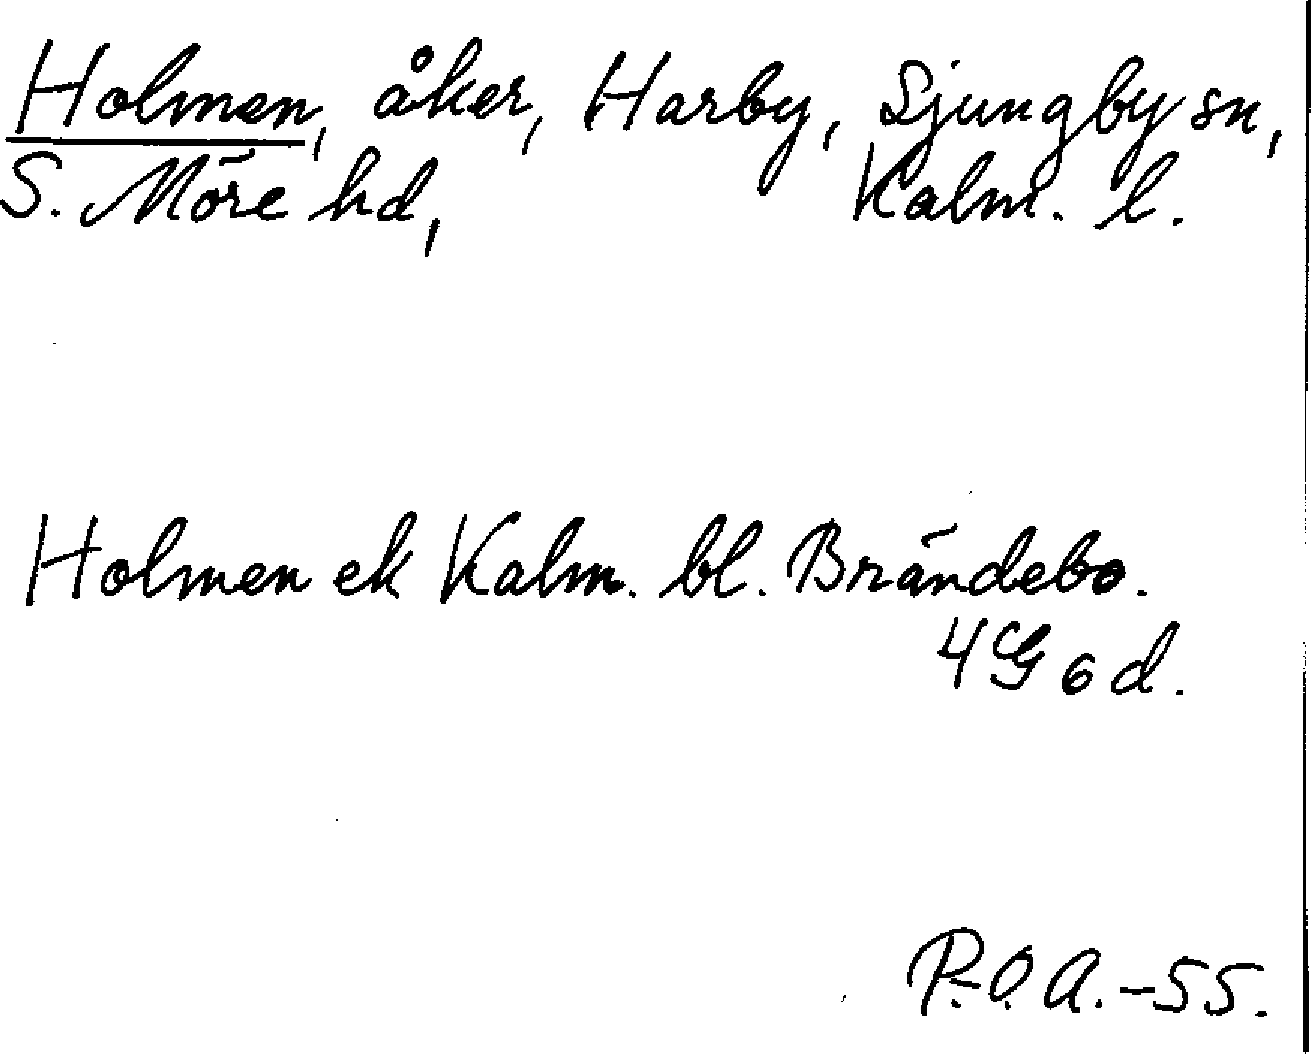 Holmen, åker, Harby, Ljungby sn,
S. Möre hd, Kalm. l.
Holmen ek Kalm. bl. Brändebo.
4G 6 d.
P.-O. A. -55.